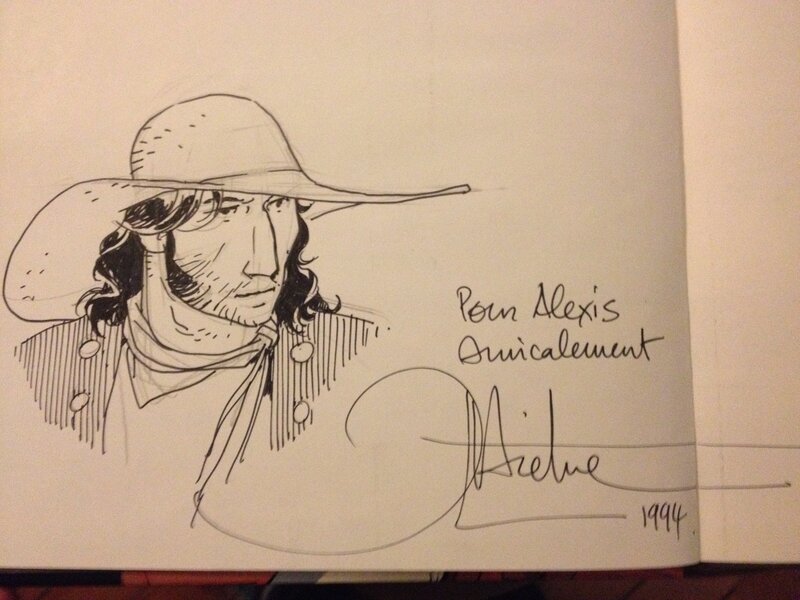 Pour Alexis
Amicalement
1994